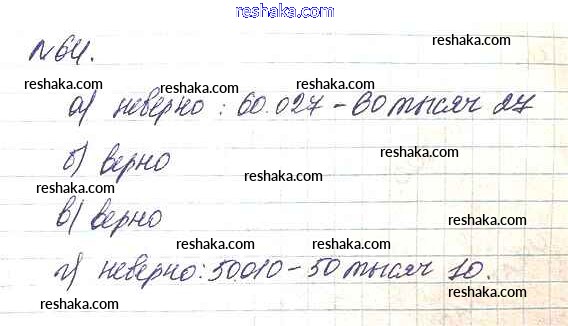 reshaka.com
№64.
reshaka.com
reshaka.com reshaka.com reshaka.com
а) неверно : 60.027 – 60 тысяч 27
reshaka.com
reshaka.com
б) верно
reshaka.com
reshaka.com
reshaka.com
в) верно
reshaka.com
reshaka.com
г) неверно: 50.010 – 50 тысяч 10.
reshaka.com
reshaka.com
reshaka.com